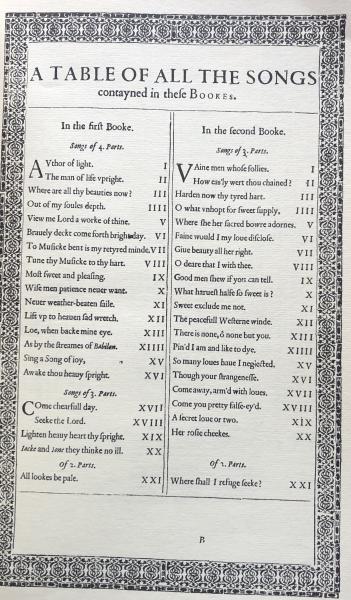 A TABLE OF ALL THE SONGS
contayned in theſe BOOKES.
In the firſt Booke.
Songs of 4. Parts.
AVthor of light. I
The man of life vpright. II
Where are all thy beauties now? III
Out of my ſoules depth. IIII
View me Lord a worke of thine. V
Brauely deckt come forth bright day. VI
To Muſicke bent is my retyred minde. VII
Tune thy Muſicke to thy hart. VIII
Moſt ſweet and pleaſing. IX
Wiſe men patience neuer want. X
Neuer weather-beaten ſaile. XI
Lift vp to heauen ſad wretch. XII
Loe, when backe mine eye. XIII
As by the ſtreames of Babilon. XIIII
Sing a Song of ioy, XV
Awake thou heauy ſpright. XVI
Songs of 3. Parts.
COme chearfull day. XVII
Seeke the Lord. XVIII
Lighten heauy heart thy ſpright. XIX
Iacke and Ione they thinke no ill. XX
Of 2. Parts.
All lookes be pale. XXI
In the second Booke.
Songs of 3. Parts.
VAine men whoſe follies. I
How eas'ly wert thou chained? II
Harden now thy tyred hart. III
O what vnhopt for ſweet ſupply, IIII
Where ſhe her ſacred bowre adornes. V
Faine would I my loue diſcloſe. VI
Giue beauty all her right. VII
O deare that I with thee. VIII
Good men ſhew if you can tell. IX
What harueſt halfe ſo ſweet is? X
Sweet exclude me not. XI
The peacefull Weſterne winde. XII
There is none, ô none but you. XIII
Pin'd I am and like to dye. XIIII
So many loues haue I neglected. XV
Though your ſtrangeneſſe. XVI
Come away, arm'd with loues. XVII
Come you pretty falſe-ey'd. XVIII
A ſecret loue or two. XIX
Her roſie cheekes. XX
Of 2. Parts.
Where ſhall I refuge ſeeke? XXI
B